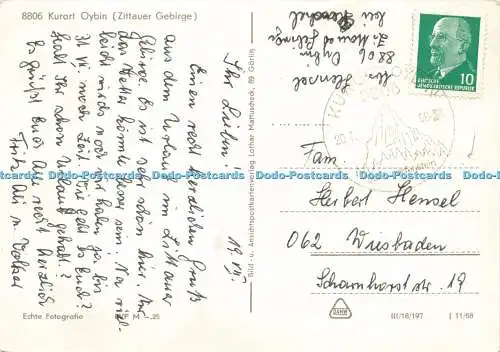 8806 Kurort Oybin (Zittauer Gebirge)
19. VII.
Ihr Lieben!
Einen recht herzlichen Gruß
aus dem Urlaub im Zittauer
Gebirge. Es ist sehr schön hier. Nur
das Wetter könnte besser sein. Na viel-
leicht wirds noch. Wir haben ja bis
31. VII. noch Zeit. Wie geht es Euch?
Habt Ihr schon Urlaub gehabt?
Es grüßt Euch alle recht herzlich
Fritz
Echte Fotografie
M –.25
Bild- u. Ansichtspostkartenverlag Lothar Martuscheck, 89 Görlitz
Hensel
8806 Oybin
Zittauer Gebirge
bei
DEUTSCHE
DEMOKRATISCHE REPUBLIK
10
KURORT
Fam
Herbert Hensel
062 Wiesbaden
Scharnhorststr. 19
III/18/197
J 11/68
Dodo-Postcards Dodo-Postcards Dodo-Postcards Dodo-Postcards Dodo-Postcards